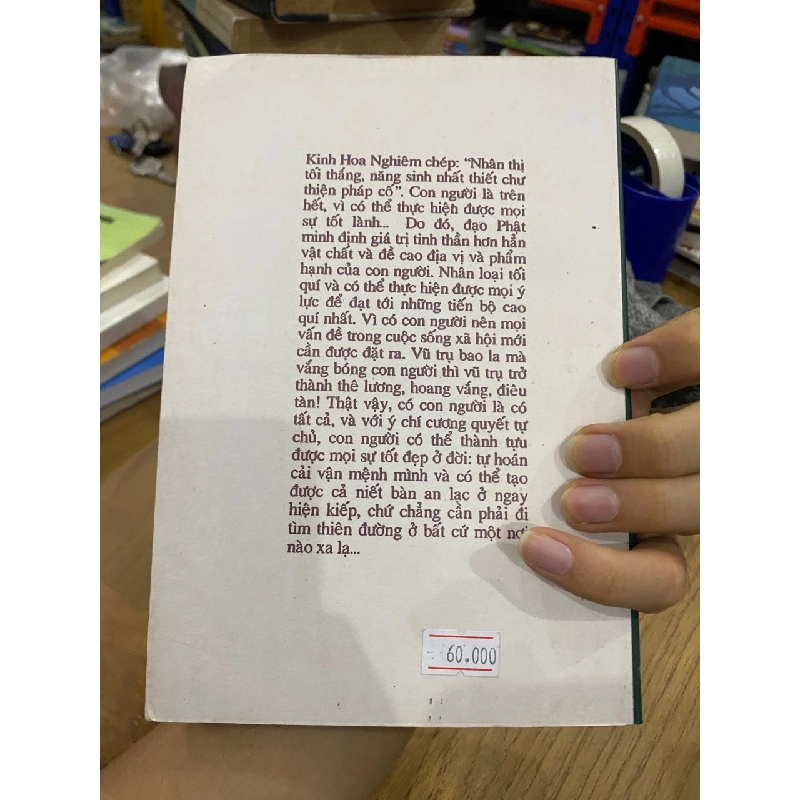 Kinh Hoa Nghiêm chép: "Nhân thị
tối thắng, năng sinh nhất thiết chư
thiện pháp cố". Con người là trên
hết, vì có thể thực hiện được mọi
sự tốt lành... Do đó, đạo Phật
minh định giá trị tinh thần hơn hẳn
vật chất và đề cao địa vị và phẩm
hạnh của con người. Nhân loại tối
quí và có thể thực hiện được mọi ý
lực để đạt tới những tiến bộ cao
quí nhất. Vì có con người nên mọi
vấn đề trong cuộc sống xã hội mới
cần được đặt ra. Vũ trụ bao la mà
vắng bóng con người thì vũ trụ trở
thành thê lương, hoang vắng, điêu
tàn! Thật vậy, có con người là có
tất cả, và với ý chí cương quyết tự
chủ, con người có thể thành tựu
được mọi sự tốt đẹp ở đời: tự hoán
cải vận mệnh mình và có thể tạo
được cả niết bàn an lạc ở ngay
hiện kiếp, chứ chẳng cần phải đi
tìm thiên đường ở bất cứ một nơi
nào xa lạ...
60.000